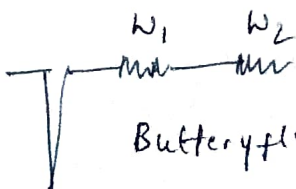 W₁ W₂
Butteryfl